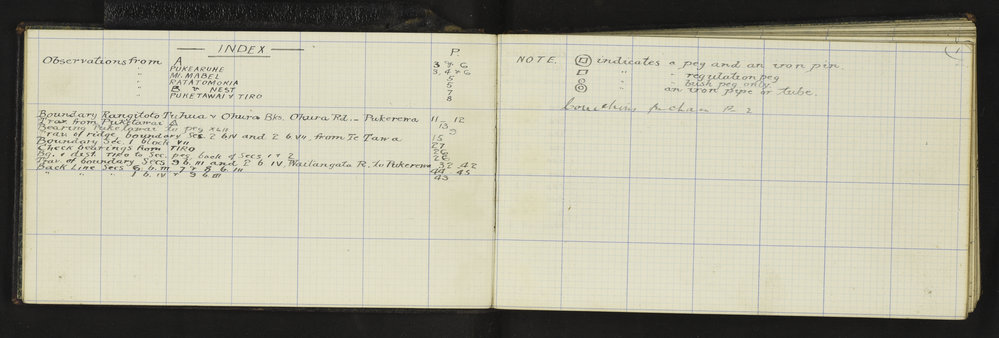 INDEX
P.
Observations from A 3 & 6
" PUKEARUHE 3, 4 & 6
" Mt. MABEL 5
" RATATOMOKIA 5
" B & NEST 7
" PUKETAWAI & TIRO 8
Boundary Rangitoto Tuhua & Ohura Bks. Ohura Rd. - Pukerewa 11 - 12
Trav. from Puketawai A 13
Bearing Puketawai to peg 9
Trav. of ridge boundary Sec. 2 b. IV and 2 b. VII, from Te Tawa 15
Boundary Sec. 1 block VII 27
Check bearings from TIRO 26
Bg. & dist. TIRO to Sec. peg. back of Secs 1 & 2 26
Trav. of boundary Secs 9 b. III and 2 b. IV Waitangata R. to Pukerewa 32 - 42
Back Line Secs b. III 7 & 8 b. III 44 - 45
" " " 1 b. IV & 9 b. III 43
1
NOTE. indicates a peg and an iron pin.
" " regulation peg
" " bush peg only
" an iron pipe or tube.